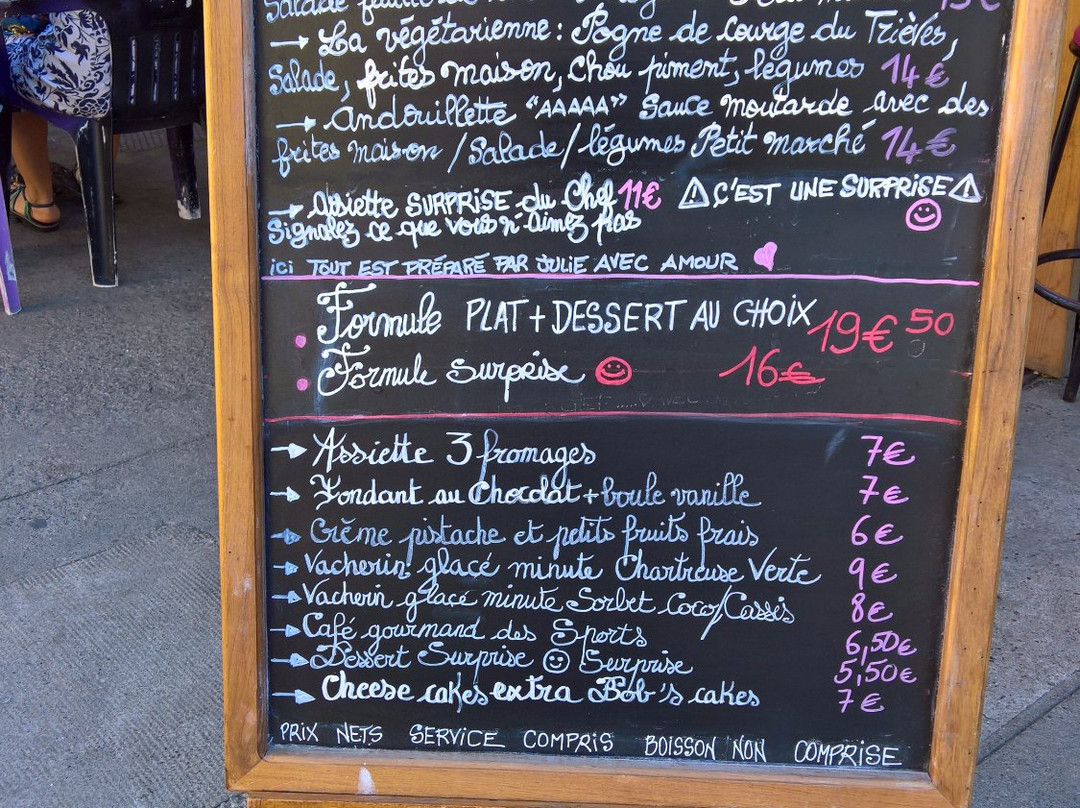 Salade
→ La végétarienne : Pogne de courge du Trièves,
Salade, frites maison, chou piment, légumes 14€
→ Andouillette "AAAAA" Sauce Moutarde avec des
frites maison / Salade / légumes Petit marché 14€
→ Assiette SURPRISE du Chef 11€ ⚠ C'EST UNE SURPRISE ⚠
Signalez ce que vous n'aimez pas
ici TOUT EST PRÉPARÉ PAR JULIE AVEC AMOUR
Formule PLAT + DESSERT AU CHOIX 19€50
Formule Surprise 16€
→ Assiette 3 fromages 7€
→ Fondant au Chocolat + boule vanille 7€
→ Crème pistache et petits fruits frais 6€
→ Vacherin glacé minute Chartreuse Verte 9€
→ Vacherin glacé minute Sorbet Coco/Cassis 8€
→ Café gourmand des Sports 6,50€
→ Dessert Surprise Surprise 5,50€
→ Cheese cakes extra Bob's cakes 7€
PRIX NETS SERVICE COMPRIS BOISSON NON COMPRISE